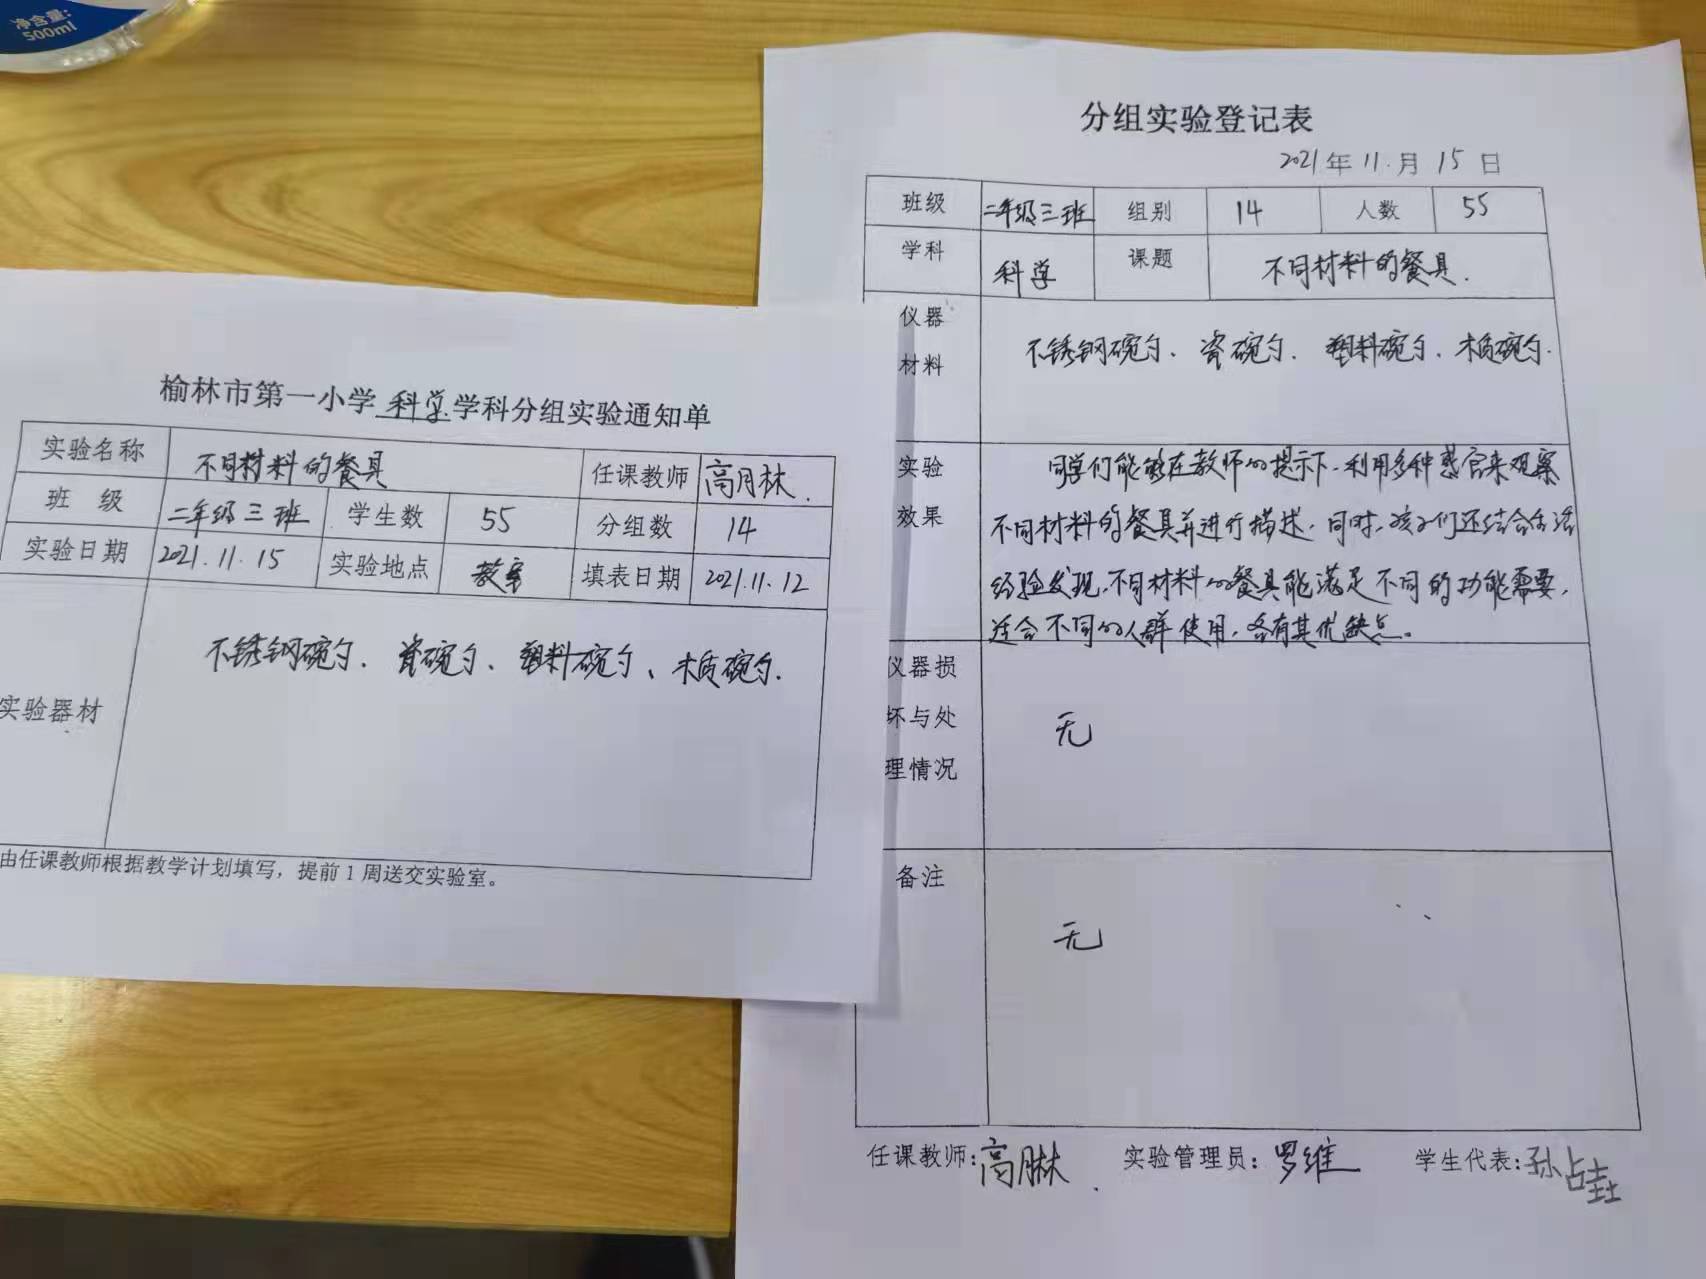 净含量:
500ml
榆林市第一小学 科学 学科分组实验通知单
实验名称 不同材料的餐具 任课教师 高月林.
班 级 二年级三班 学生数 55 分组数 14
实验日期 2021.11.15 实验地点 教室 填表日期 2021.11.12
实验器材 不锈钢碗勺、瓷碗勺、塑料碗勺、木质碗勺.
由任课教师根据教学计划填写，提前1周送交实验室。
分组实验登记表
2021年11.月15日
班级 二年级三班 组别 14 人数 55
学科 科学 课题 不同材料的餐具.
仪器
材料
不锈钢碗勺、瓷碗勺、塑料碗勺、木质碗勺.
实验
效果
同学们能够在教师的提示下、利用多种感官来观察
不同材料的餐具并进行描述.同时,孩子们还结合生活
经验发现,不同材料的餐具能满足不同的功能需要,
适合不同的人群使用,各有其优缺点。
仪器损
坏与处
理情况
无
备注
无
任课教师:高月林. 实验管理员:罗维 学生代表:孙占